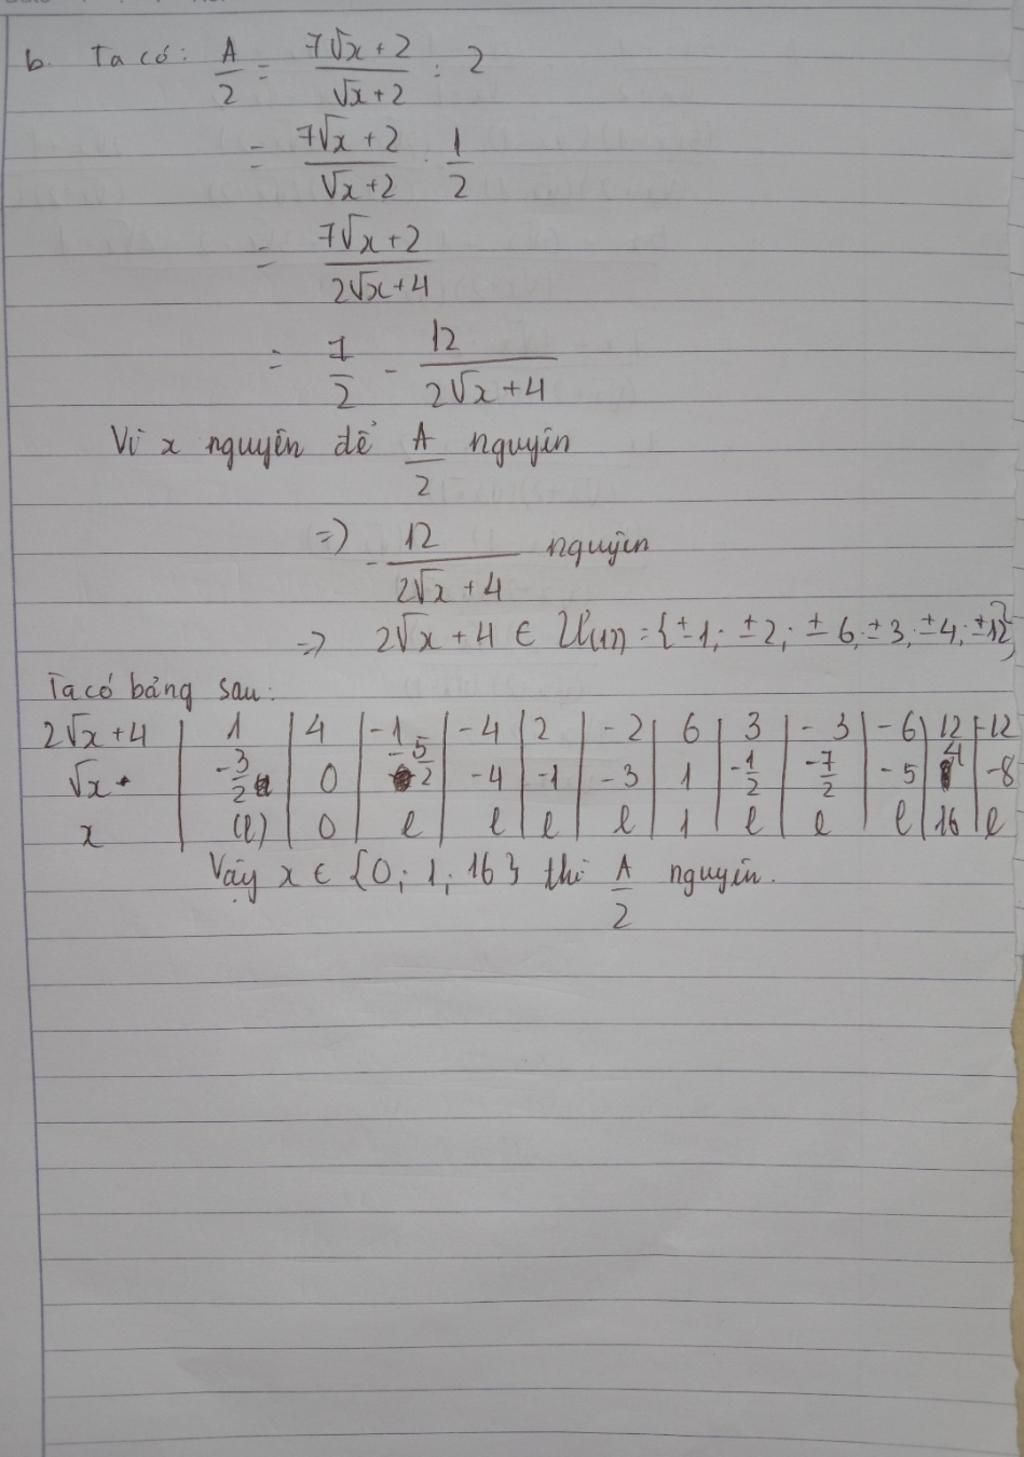 b. Ta có: A/2 = (7√x + 2)/(√x + 2) : 2
= (7√x + 2)/(√x + 2) · 1/2
= (7√x + 2)/(2√x + 4)
= 7/2 - 12/(2√x + 4)
Vì x nguyên để A/2 nguyên
=> - 12/(2√x + 4) nguyên
=> 2√x + 4 ∈ Ư(12) = {±1; ±2; ±6; ±3; ±4; ±12}
Ta có bảng sau:
2√x + 4 | 1 | 4 | -1 | -4 | 2 | -2 | 6 | 3 | -3 | -6 | 12 | -12
√x | -3/2 | 0 | -5/2 | -4 | -1 | -3 | 1 | -1/2 | -7/2 | -5 | 4 | -8
x | (l) | 0 | l | l | l | l | 1 | l | l | l | 16 | l
Vậy x ∈ {0; 1; 16} thì A/2 nguyên.